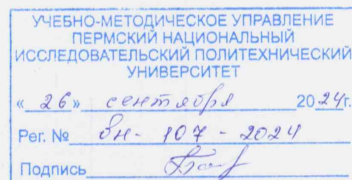 УЧЕБНО-МЕТОДИЧЕСКОЕ УПРАВЛЕНИЕ
ПЕРМСКИЙ НАЦИОНАЛЬНЫЙ
ИССЛЕДОВАТЕЛЬСКИЙ ПОЛИТЕХНИЧЕСКИЙ
УНИВЕРСИТЕТ
«26» сентября 2024г.
Рег. № вн-107-2024
Подпись